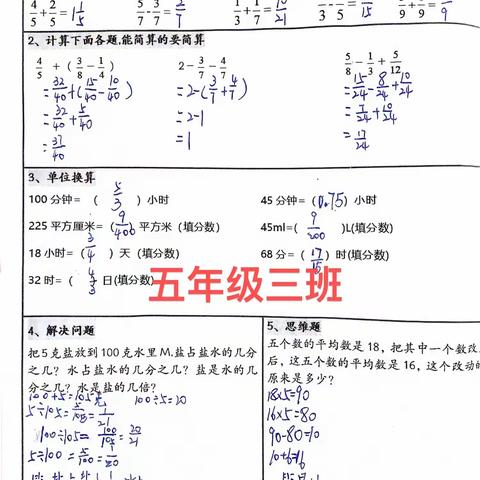 4/5+2/5=1 1/5 5/7-3/7=2/7 1/3+1/7=10/21
2、计算下面各题,能简算的要简算
4/5 + (3/8 - 1/4) 2 - 3/7 - 4/7 5/8 - 1/3 + 5/12
=32/40+(15/40-10/40) =2-(3/7+4/7) =15/24-8/24+10/24
=32/40+5/40 =2-1 =7/24+10/24
=37/40 =1 =17/24
3、单位换算
100 分钟=( 5/3 )小时 45 分钟=(0.75)小时
225 平方厘米=(9/400)平方米(填分数) 45ml=( 9/200 )L(填分数)
18 小时=( 3/4 )天(填分数) 68 分=( 17/15 )时(填分数)
32 时=( 4/3 日(填分数)
五年级三班
4、解决问题
把 5 克盐放到 100 克水里 M,盐占盐水的几分
之几?水占水盐水的几分之几?盐是水的几
分之几?水是盐的几倍?
100+5=105克 100÷5=20
5÷105=5/105=1/21
100÷105=100/105=20/21
5÷100=5/100=1/20
5、思维题
五个数的平均数是 18,把其中一个数改
后,这五个数的平均数是 16,这个改动的
原来是多少?
18×5=90
16×5=80
90-80=10
10+6=16